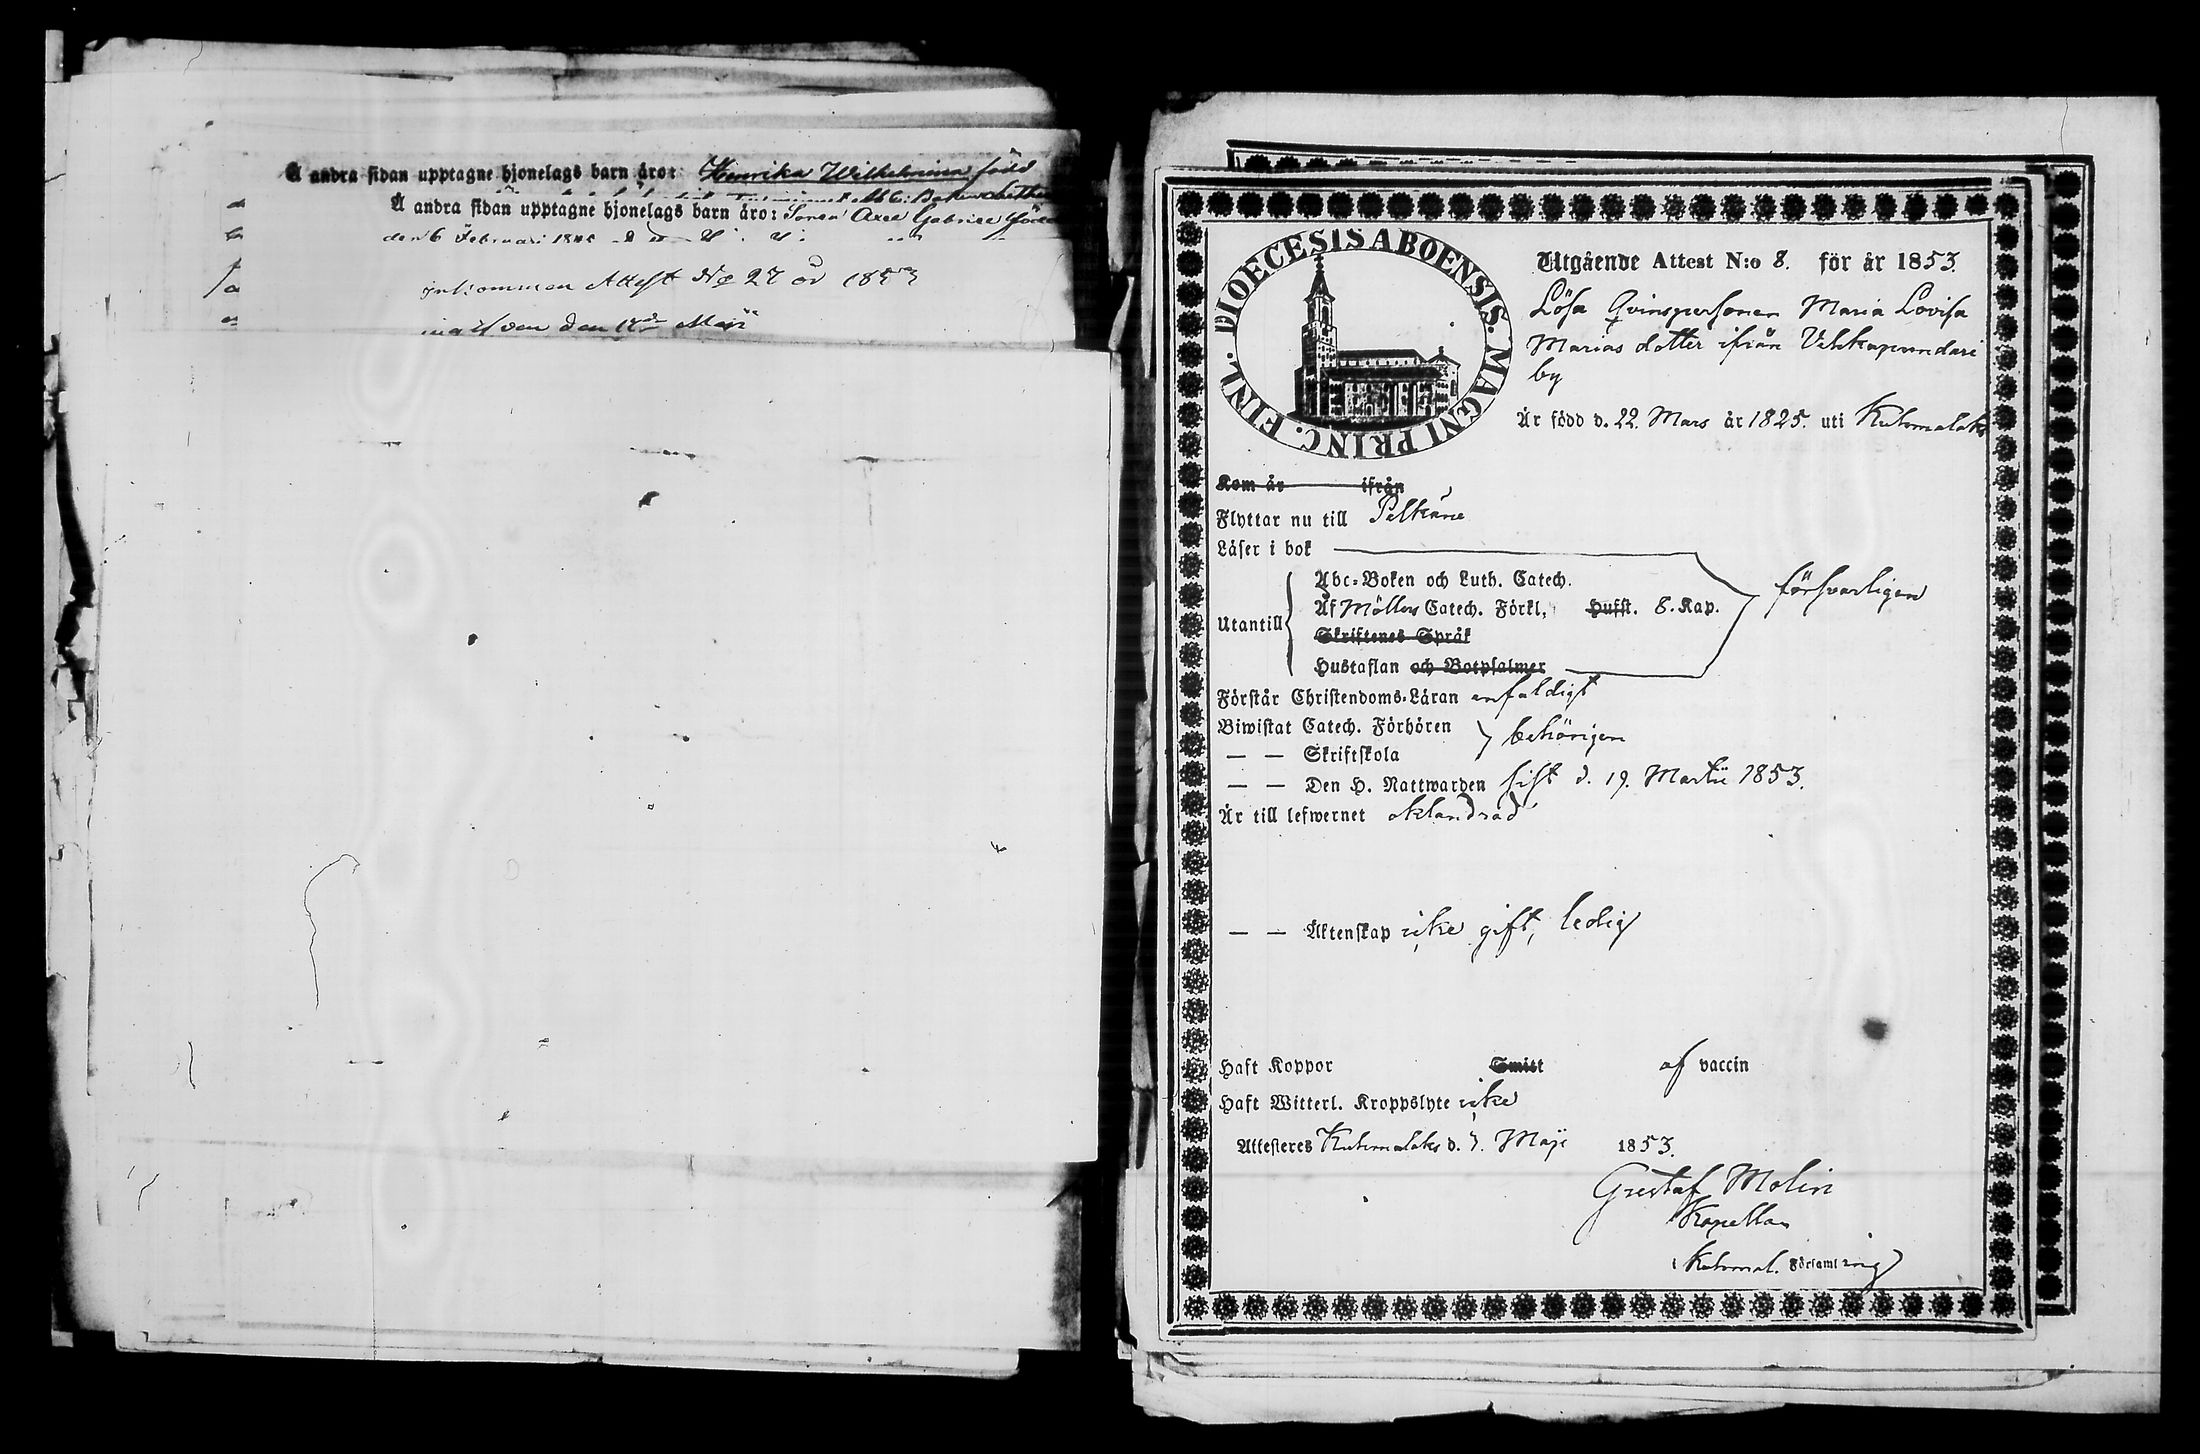 Å andra sidan upptagne hjonelags barn äro: Henrika Wilhelmina född
Å andra sidan upptagne hjonelags barn äro: Sonen Axel Gabriel född
den 6 Februari
Inkommen Attest No 27 år 1853
den 12 Maji
DIOECESIS ABOENSIS. MAGNI PRINC. FINL.
Utgående Attest N:o 8. för år 1853.
Lösa Qvinspersonen Maria Lovisa
Marias dotter ifrån Vehkapundari
by
Är född d. 22. Mars år 1825. uti Kuhmalaks
Kom år ifrån
Flyttar nu till Pelkäne
Läser i bok
Abc-Boken och Luth. Catech.
Af Möllers Catech. Förkl, Hufst. 8. Kap.
Utantill
försvarligen
Skriftenes Språk
Hustaflan och Botpsalmer
Förstår Christendoms-Läran enfaldigt
Biwistat Catech. Förhören
— — Skriftskola
behörigen
— — Den H. Nattwarden sist d. 19. Martii 1853.
Är till lefwernet oklandrad
— — Äktenskap icke gift, ledig
Haft Koppor Smitt af vaccin
Haft Witterl. Kroppslyte icke
Attesteres Kuhmalaks d. 7. Maji 1853.
Gustaf Molin
Kapellan
i Kuhmal. Församling